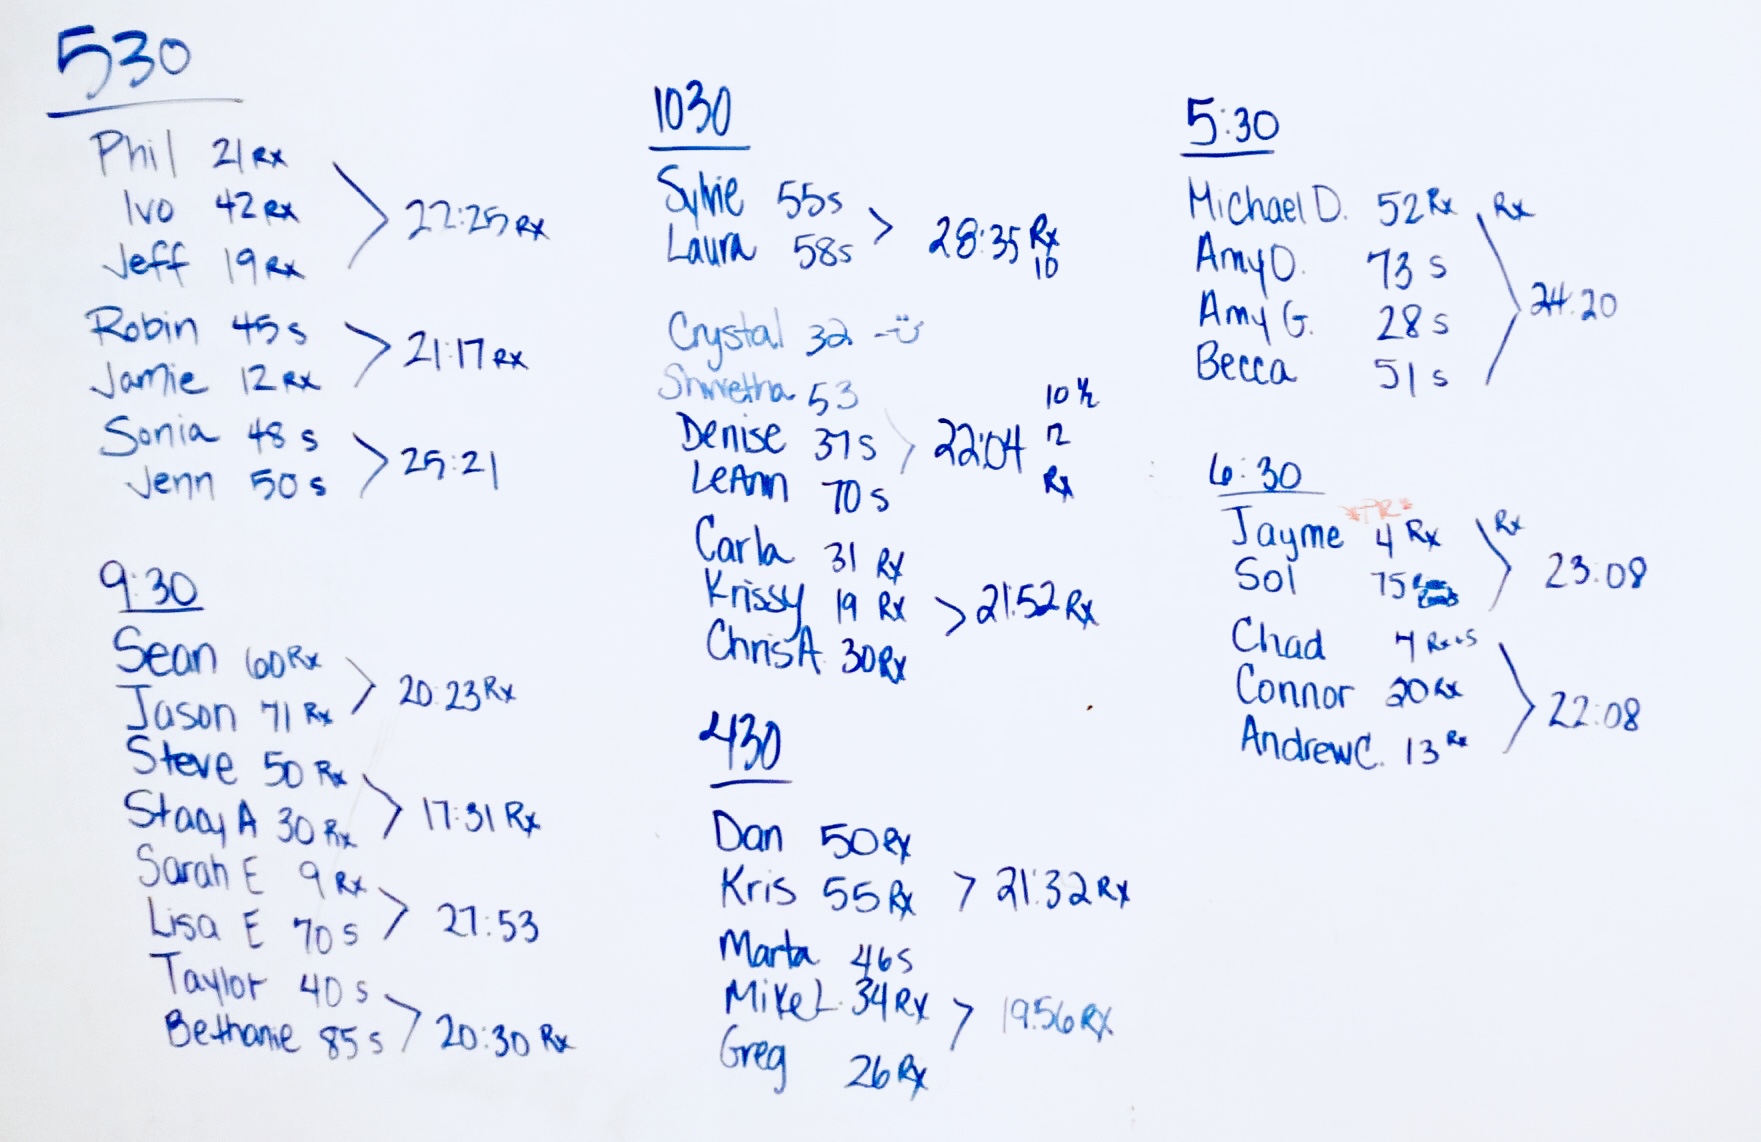 530
Phil 21 Rx
Ivo 42 Rx > 22:25 Rx
Jeff 19 Rx
Robin 45 s
Jamie 12 Rx > 21:17 Rx
Sonia 48 s
Jenn 50 s > 25:21
9:30
Sean 60 Rx
Jason 71 Rx > 20:23 Rx
Steve 50 Rx
Stacy A 30 Rx > 17:31 Rx
Sarah E 9 Rx
Lisa E 70 s > 27:53
Taylor 40 s
Bethanie 85 s > 20:30 Rx
1030
Sylvie 55s
Laura 58s > 28:35 Rx
10
Crystal 32
Shwetha 53
10 1/2
Denise 37s > 22:04 12
LeAnn 70 s Rx
Carla 31 Rx
Krissy 19 Rx > 21:52 Rx
Chris A 30 Rx
430
Dan 50 Rx
Kris 55 Rx > 21:32 Rx
Marta 46s
Mike L. 34 Rx > 19:56 Rx
Greg 26 Rx
5:30
Michael D. 52 Rx Rx
Amy O. 73 s
Amy G. 28 s > 24:20
Becca 51 s
6:30
*PR*
Jayme 4 Rx Rx
Sol 75 > 23:08
Chad 7 Rx+s
Connor 20 Rx > 22:08
Andrew C. 13 Rx